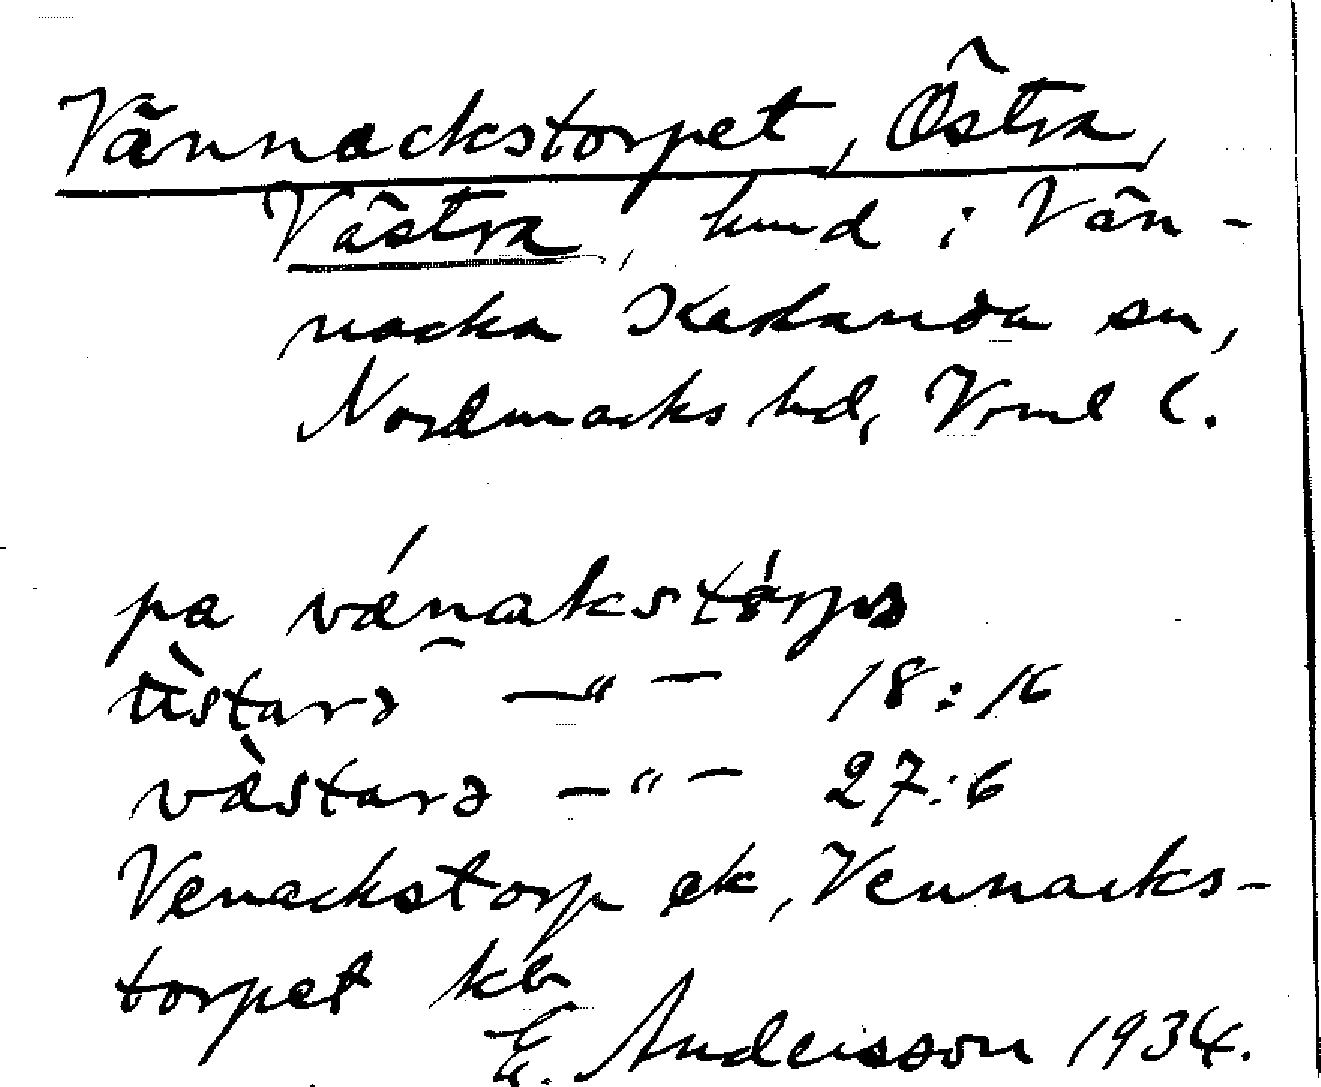 Vännackstorpet, Östra,
Västra, hmd i Vän-
nacka Karlanda sn,
Nordmarks hd, Vrml l.
pa vænakstórpə
üstarə —"— 18:16
væstarə —"— 27:6
Venackstorp ek, Vennacks-
torpet kb
E. Andersson 1934.